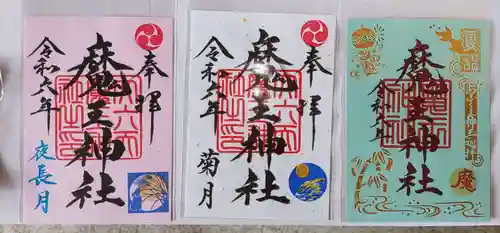 奉拝
魔王神社
令和六年
夜長月
奉拝
魔王神社
令和六年
菊月
魔王神社
令和六年
魔